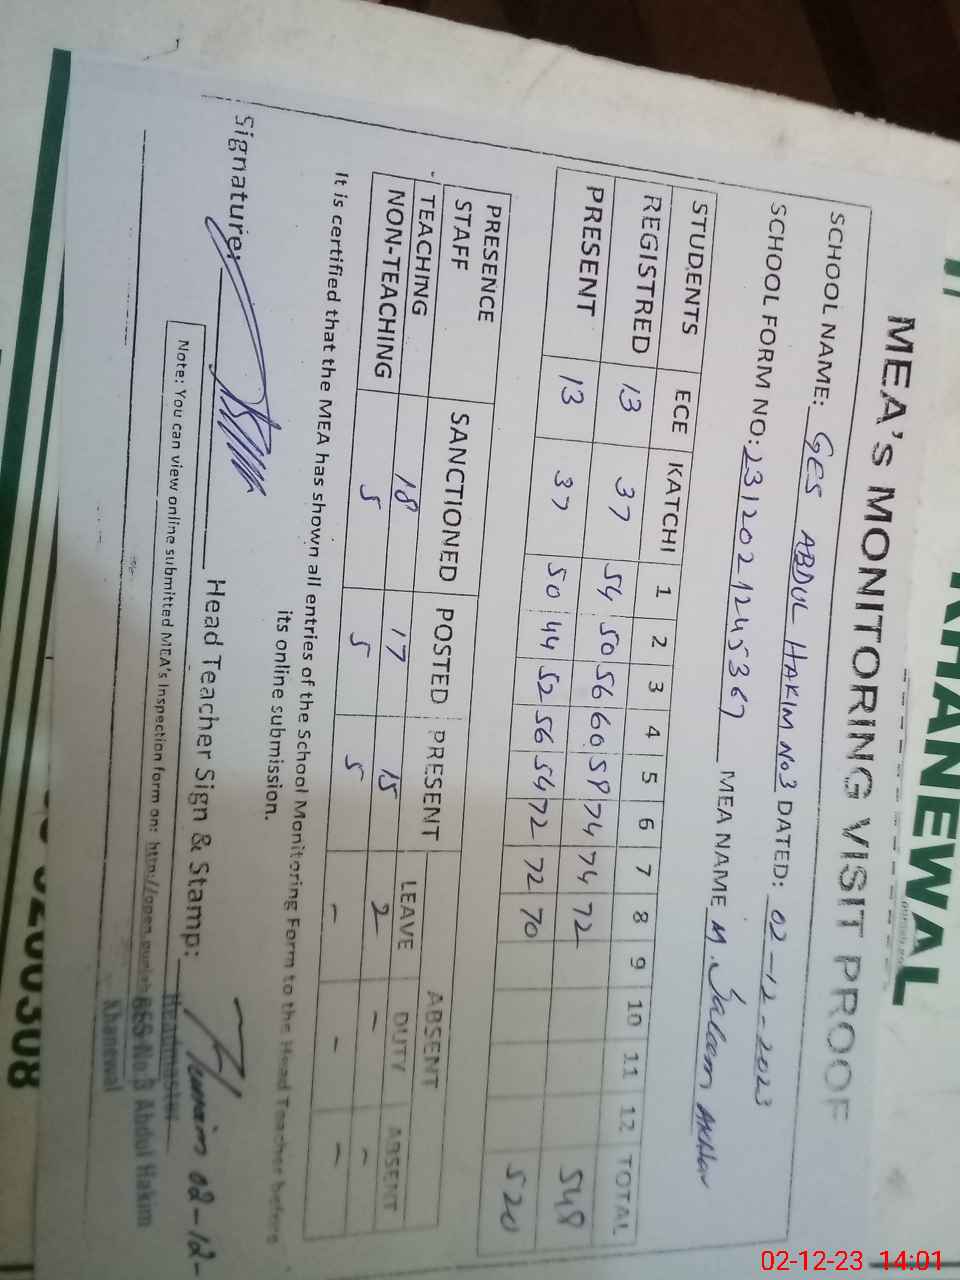 KHANEWAL
MEA's MONITORING VISIT PROOF
SCHOOL NAME: GES ABDUL HAKIM No3 DATED: 02-12-2023
SCHOOL FORM NO: 2312021245367 MEA NAME M. Saleem Akhtar
STUDENTS ECE KATCHI 1 2 3 4 5 6 7 8 9 10 11 12 TOTAL
REGISTRED 13 37 54 50 56 60 58 74 74 72 548
PRESENT 13 37 50 44 52 56 54 72 72 70 520
PRESENCE STAFF SANCTIONED POSTED PRESENT ABSENT
LEAVE DUTY ABSENT
TEACHING 18 17 15 2 - -
NON-TEACHING 5 5 5 - - -
It is certified that the MEA has shown all entries of the School Monitoring Form to the Head Teacher before
its online submission.
Signature: Head Teacher Sign & Stamp: 02-12-
Headmaster
GES No.3 Abdul Hakim
Khanewal
Note: You can view online submitted MEA's Inspection form on: http://open.punjab
0308
02-12-23 14:01